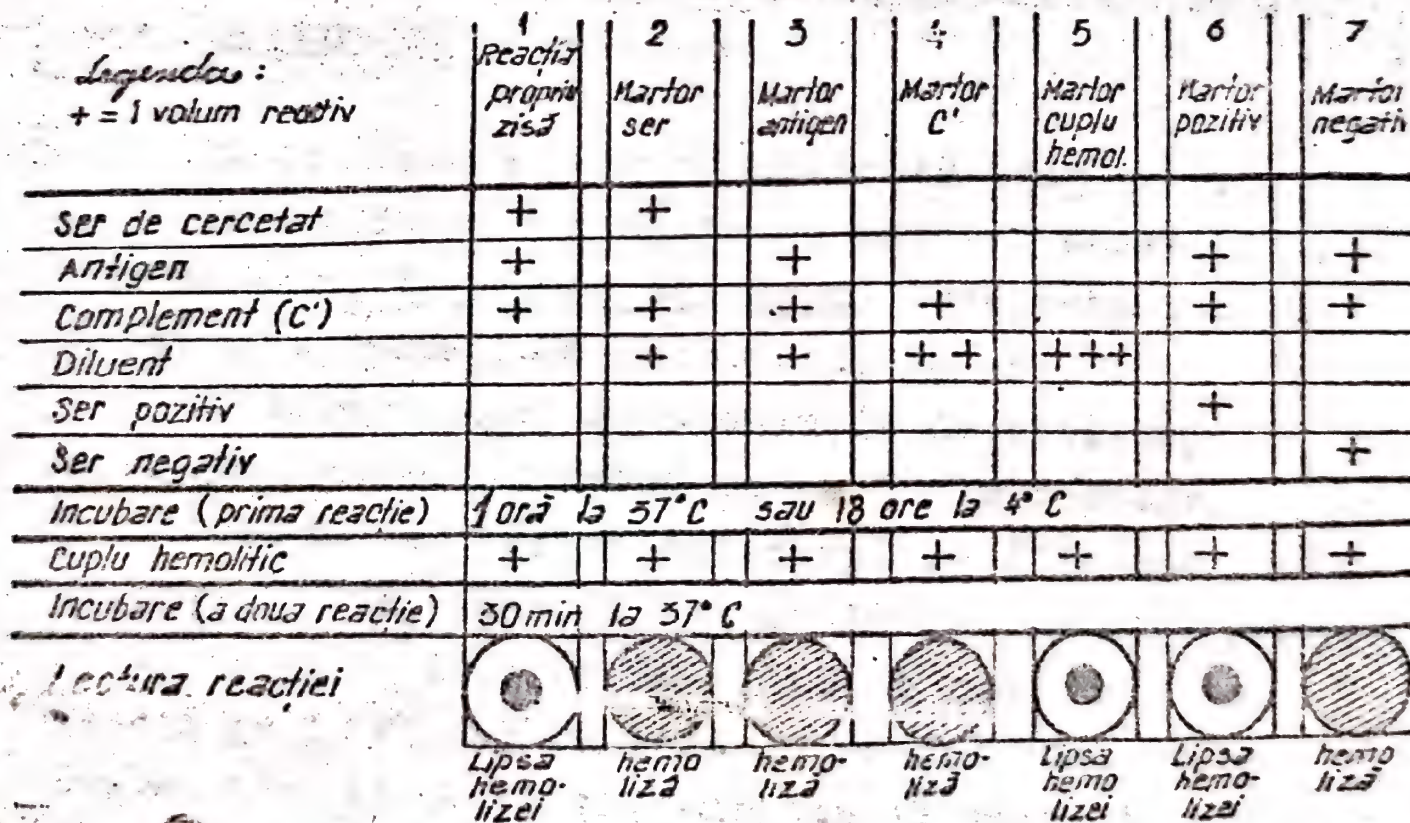 Legenda :
+ = 1 volum reactiv
1 2 3 4 5 6 7
Reacția propriu zisă
Martor ser
Martor antigen
Martor C'
Martor cuplu hemol.
Martor pozitiv
Martor negativ
Ser de cercetat + +
Antigen + + + +
Complement (C') + + + + + +
Diluent + + ++ +++
Ser pozitiv +
Ser negativ +
Incubare (prima reacție) 1 oră la 37°C sau 18 ore la 4°C
Cuplu hemolitic + + + + + + +
Incubare (a doua reacție) 30 min la 37°C
Lectura reacției
Lipsa hemo-lizei
hemo liză
hemo-liză
hemo-liză
Lipsa hemo lizei
Lipsa hemo-lizei
hemo liză